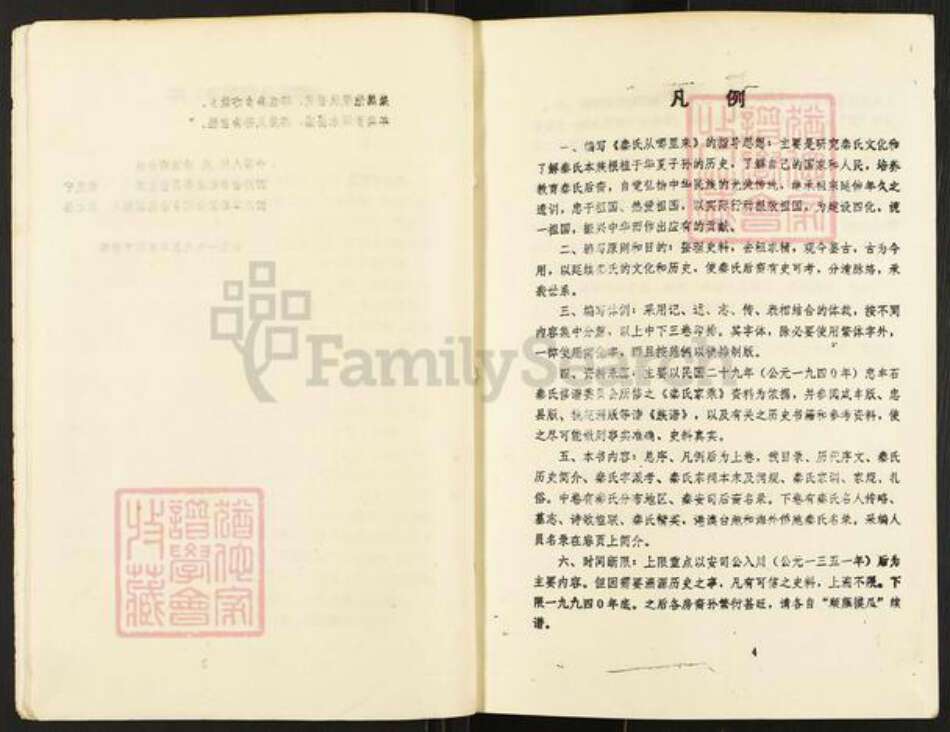 凡 例
一、编写《秦氏从哪里来》的指导思想：主要是研究秦氏文化和
了解秦氏本族根植于华夏子孙的历史，了解自己的国家和人民，培养
教育秦氏后裔，自觉弘扬中华民族的光荣传统，继承祖宗延仲年久之
遗训，忠于祖国、热爱祖国，以实际行动报效祖国，为建设四化，统
一祖国，振兴中华而作出应有的贡献。
二、编写原则和目的：整理史料，去粗求精，观今鉴古，古为今
用，以延续秦氏的文化和历史，使秦氏后裔有史可考，分清脉络，承
载世系。
三、编写体例：采用记、述、志、传、表相结合的体裁，按不同
内容集中分类，以上中下三卷印排。其字体，除必要使用繁体字外，
一律使用简化字，而且按范例以供绘制版。
四、资料来源：主要以民国二十九年（公元一九四0年）忠丰石
秦氏修谱委员会所修之《秦氏家乘》资料为依据，并参阅咸丰版、忠
县版、洲版等诸《族谱》，以及有关之历史书籍和参考资料，使
之尽可能做到事实准确、史料真实。
五、本书内容：总序、凡例后为上卷，载目录、历代序文、秦氏
历史简介、秦氏字派考、秦氏宗祠本末及祠规、秦氏家训、家规、礼
俗。中卷有秦氏分布地区、秦安司后裔名录。下卷有秦氏名人传略、
墓志、诗歌楹联、秦氏精英、港澳台胞和海外侨胞秦氏名录。采编人
员名录在扉页上简介。
六、时间断限：上限重点以安司公入川（公元一三五一年）后为
主要内容。但因需要溯源历史之事，凡有可信之史料，上溯不限。下
限一九九四0年底。之后各房裔孙繁衍甚旺，请各自“顺藤摸瓜”续
谱。
4
譜學會
收藏
FamilySearch